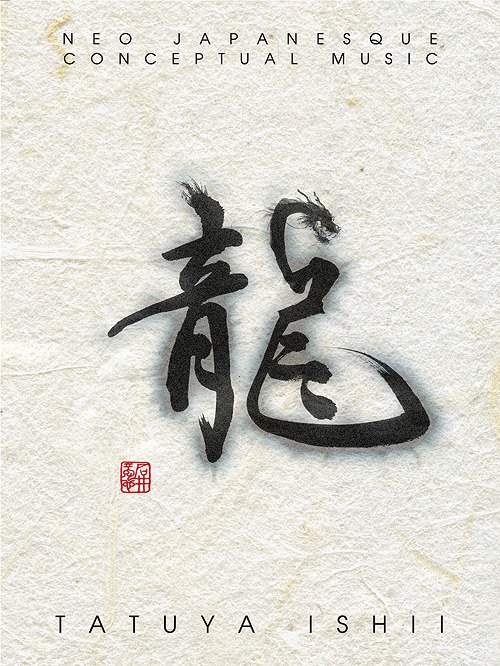 NEO JAPANESQUE
CONCEPTUAL MUSIC
龍
TATUYA ISHII